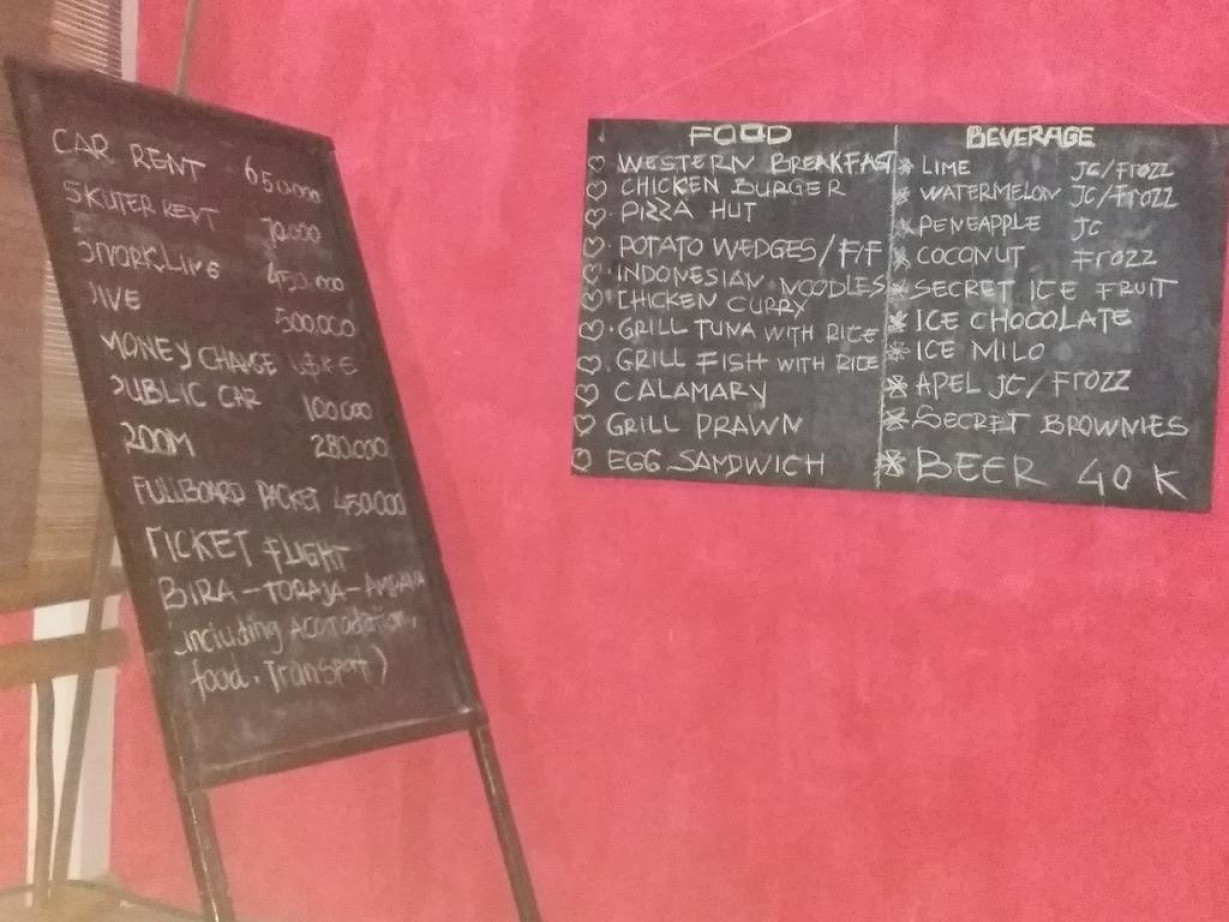 CAR RENT 650.000
SKUTER RENT 70.000
SNORKLING 450.000
DIVE 500.000
MONEY CHANGE U$ K E
PUBLIC CAR 100.000
ROOM 280.000
FULLBOARD PACKET 450.000
TICKET FLIGHT
BIRA - TORAJA -
including
food. Transport)
FOOD
WESTERN BREAKFAST
CHICKEN BURGER
PIZZA HUT
POTATO WEDGES/F/F
INDONESIAN NOODLES
CHICKEN CURRY
GRILL TUNA WITH RICE
GRILL FISH WITH RICE
CALAMARY
GRILL PRAWN
EGG SANDWICH
BEVERAGE
LIME JC/FROZZ
WATERMELON JC/FROZZ
PENEAPPLE JC
COCONUT FROZZ
SECRET ICE FRUIT
ICE CHOCOLATE
ICE MILO
APEL JC/FROZZ
SECRET BROWNIES
BEER 40 K